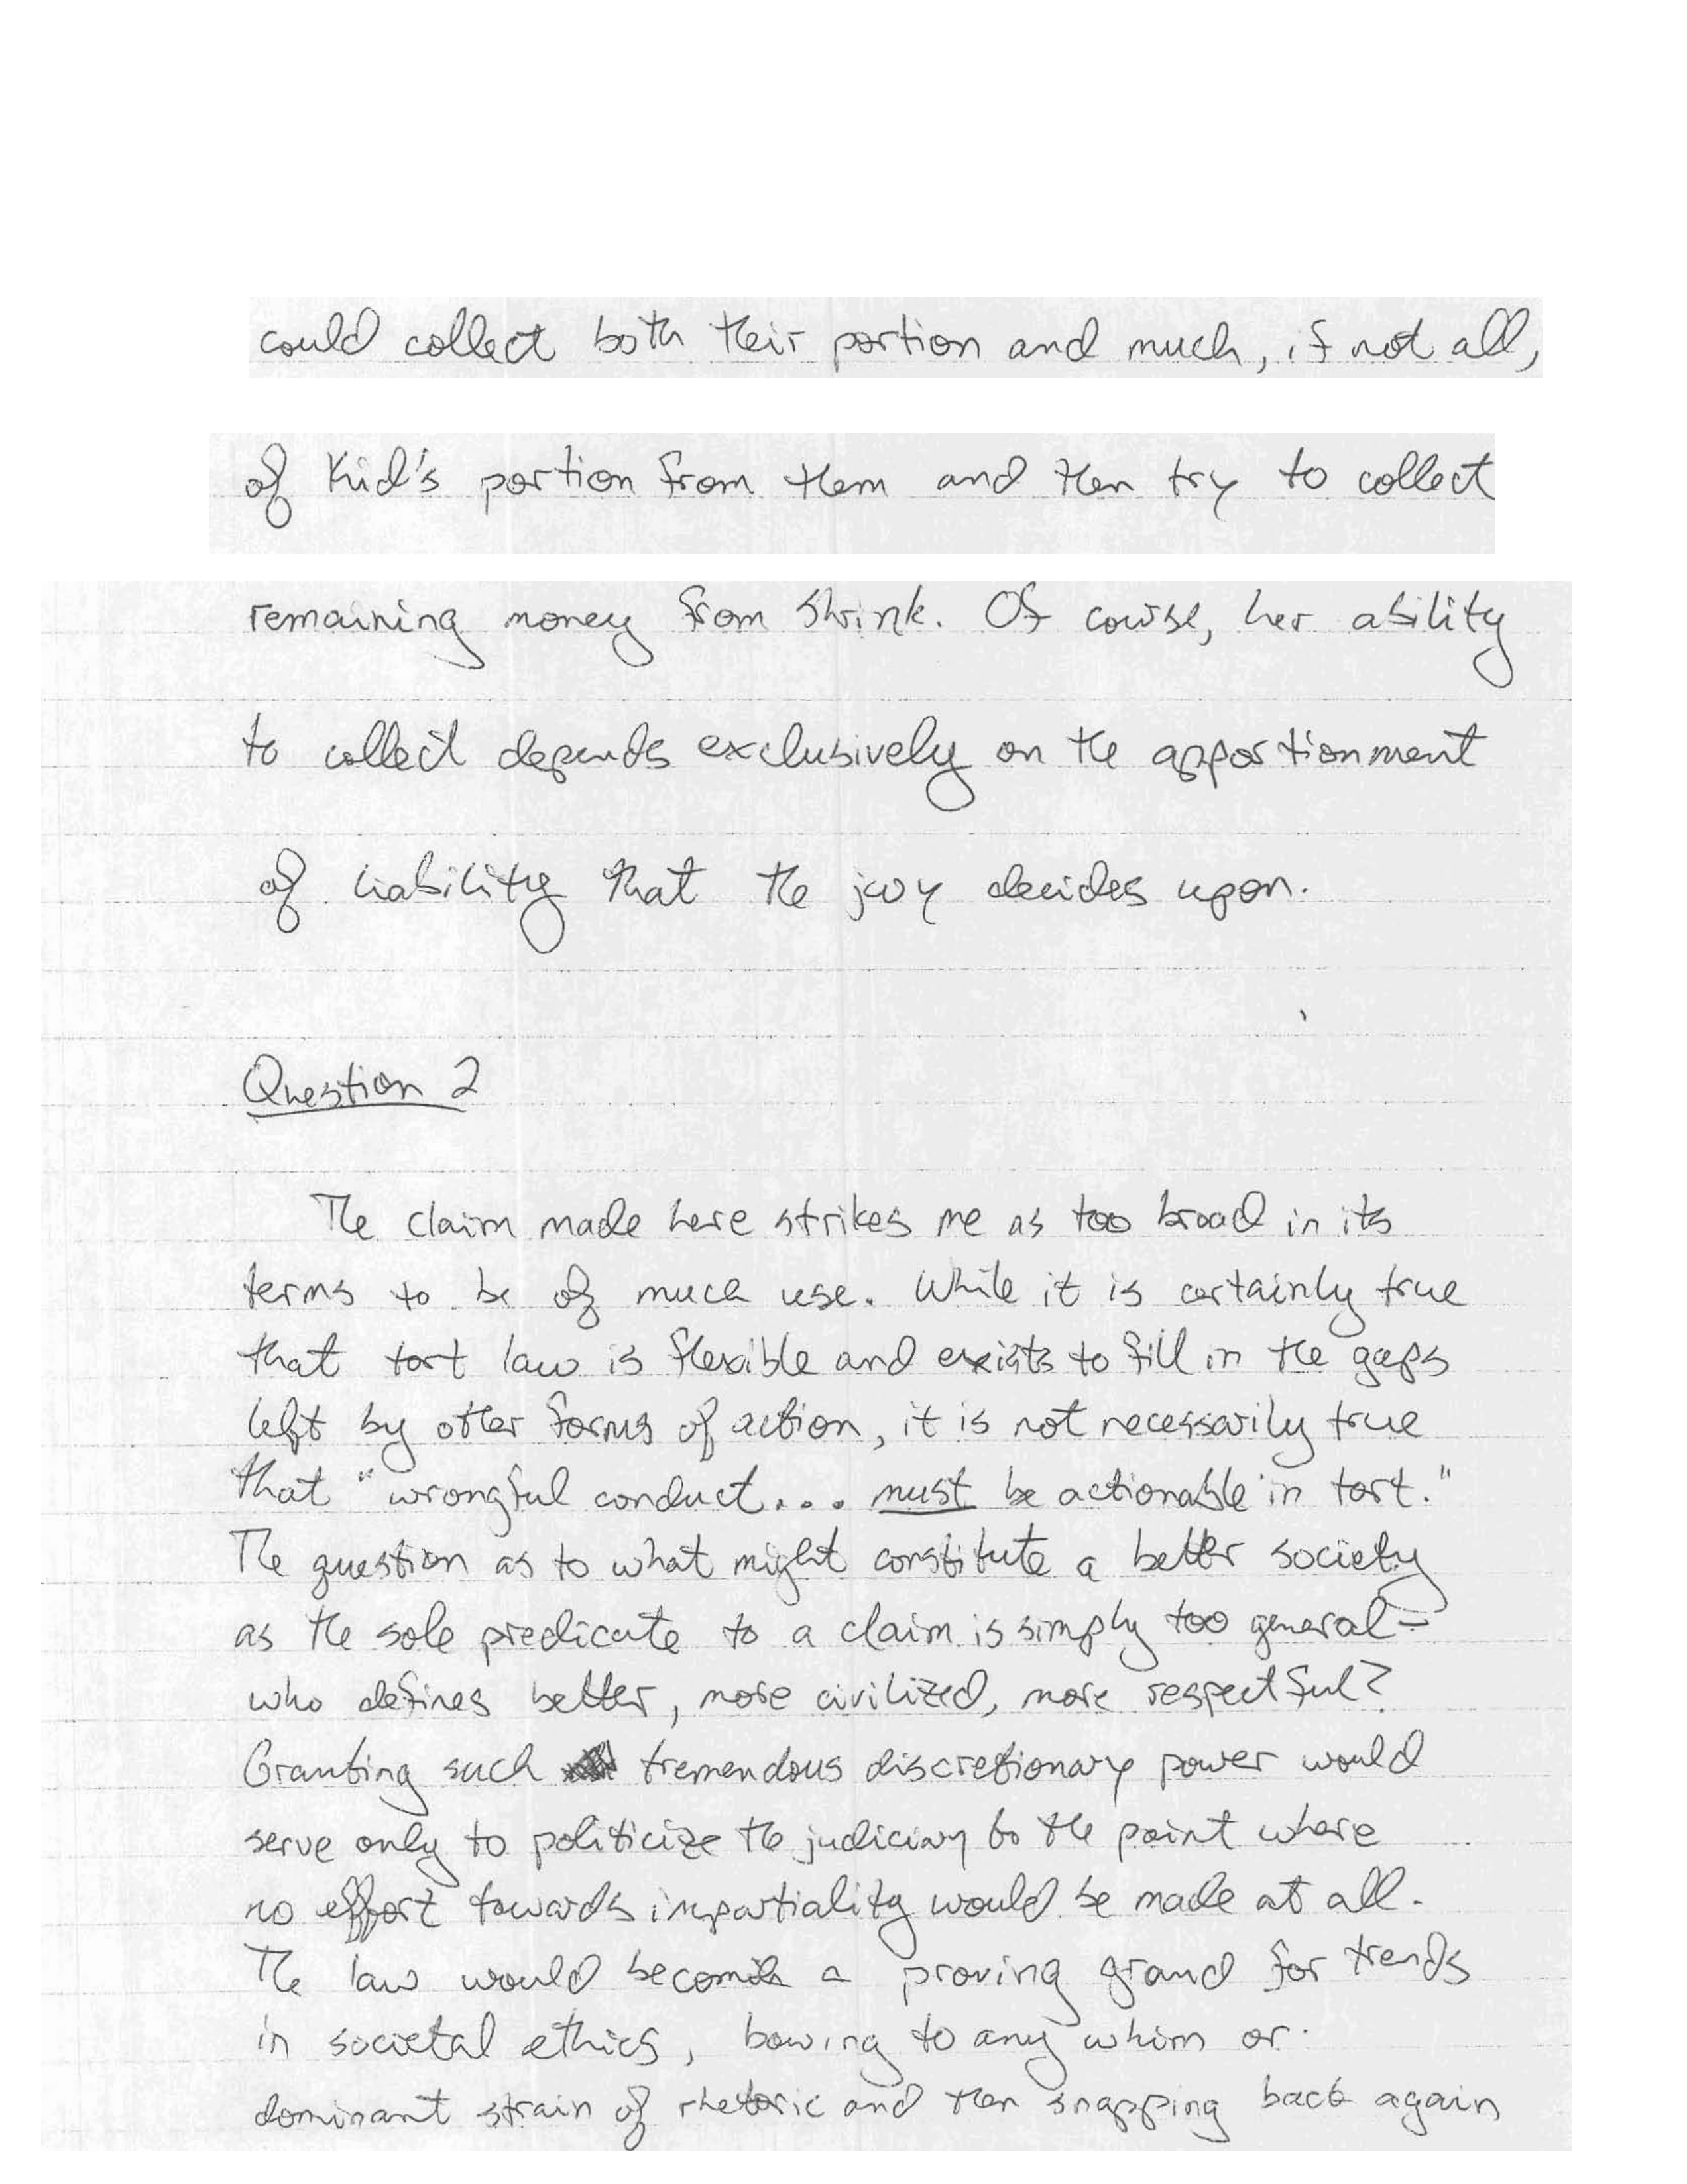 could collect both their portion and much, if not all,
of Kid's portion from them and then try to collect
remaining money from Shrink. Of course, her ability
to collect depends exclusively on the apportionment
of liability that the jury decides upon.
Question 2
The claim made here strikes me as too broad in its
terms to be of much use. While it is certainly true
that tort law is flexible and exists to fill in the gaps
left by other forms of action, it is not necessarily true
that "wrongful conduct... must be actionable in tort."
The question as to what might constitute a better society
as the sole predicate to a claim is simply too general-
who defines better, more civilized, more respectful?
Granting such tremendous discretionary power would
serve only to politicize the judiciary to the point where
no effort towards impartiality would be made at all.
The law would become a proving ground for trends
in societal ethics, bowing to any whim or
dominant strain of rhetoric and then snapping back again